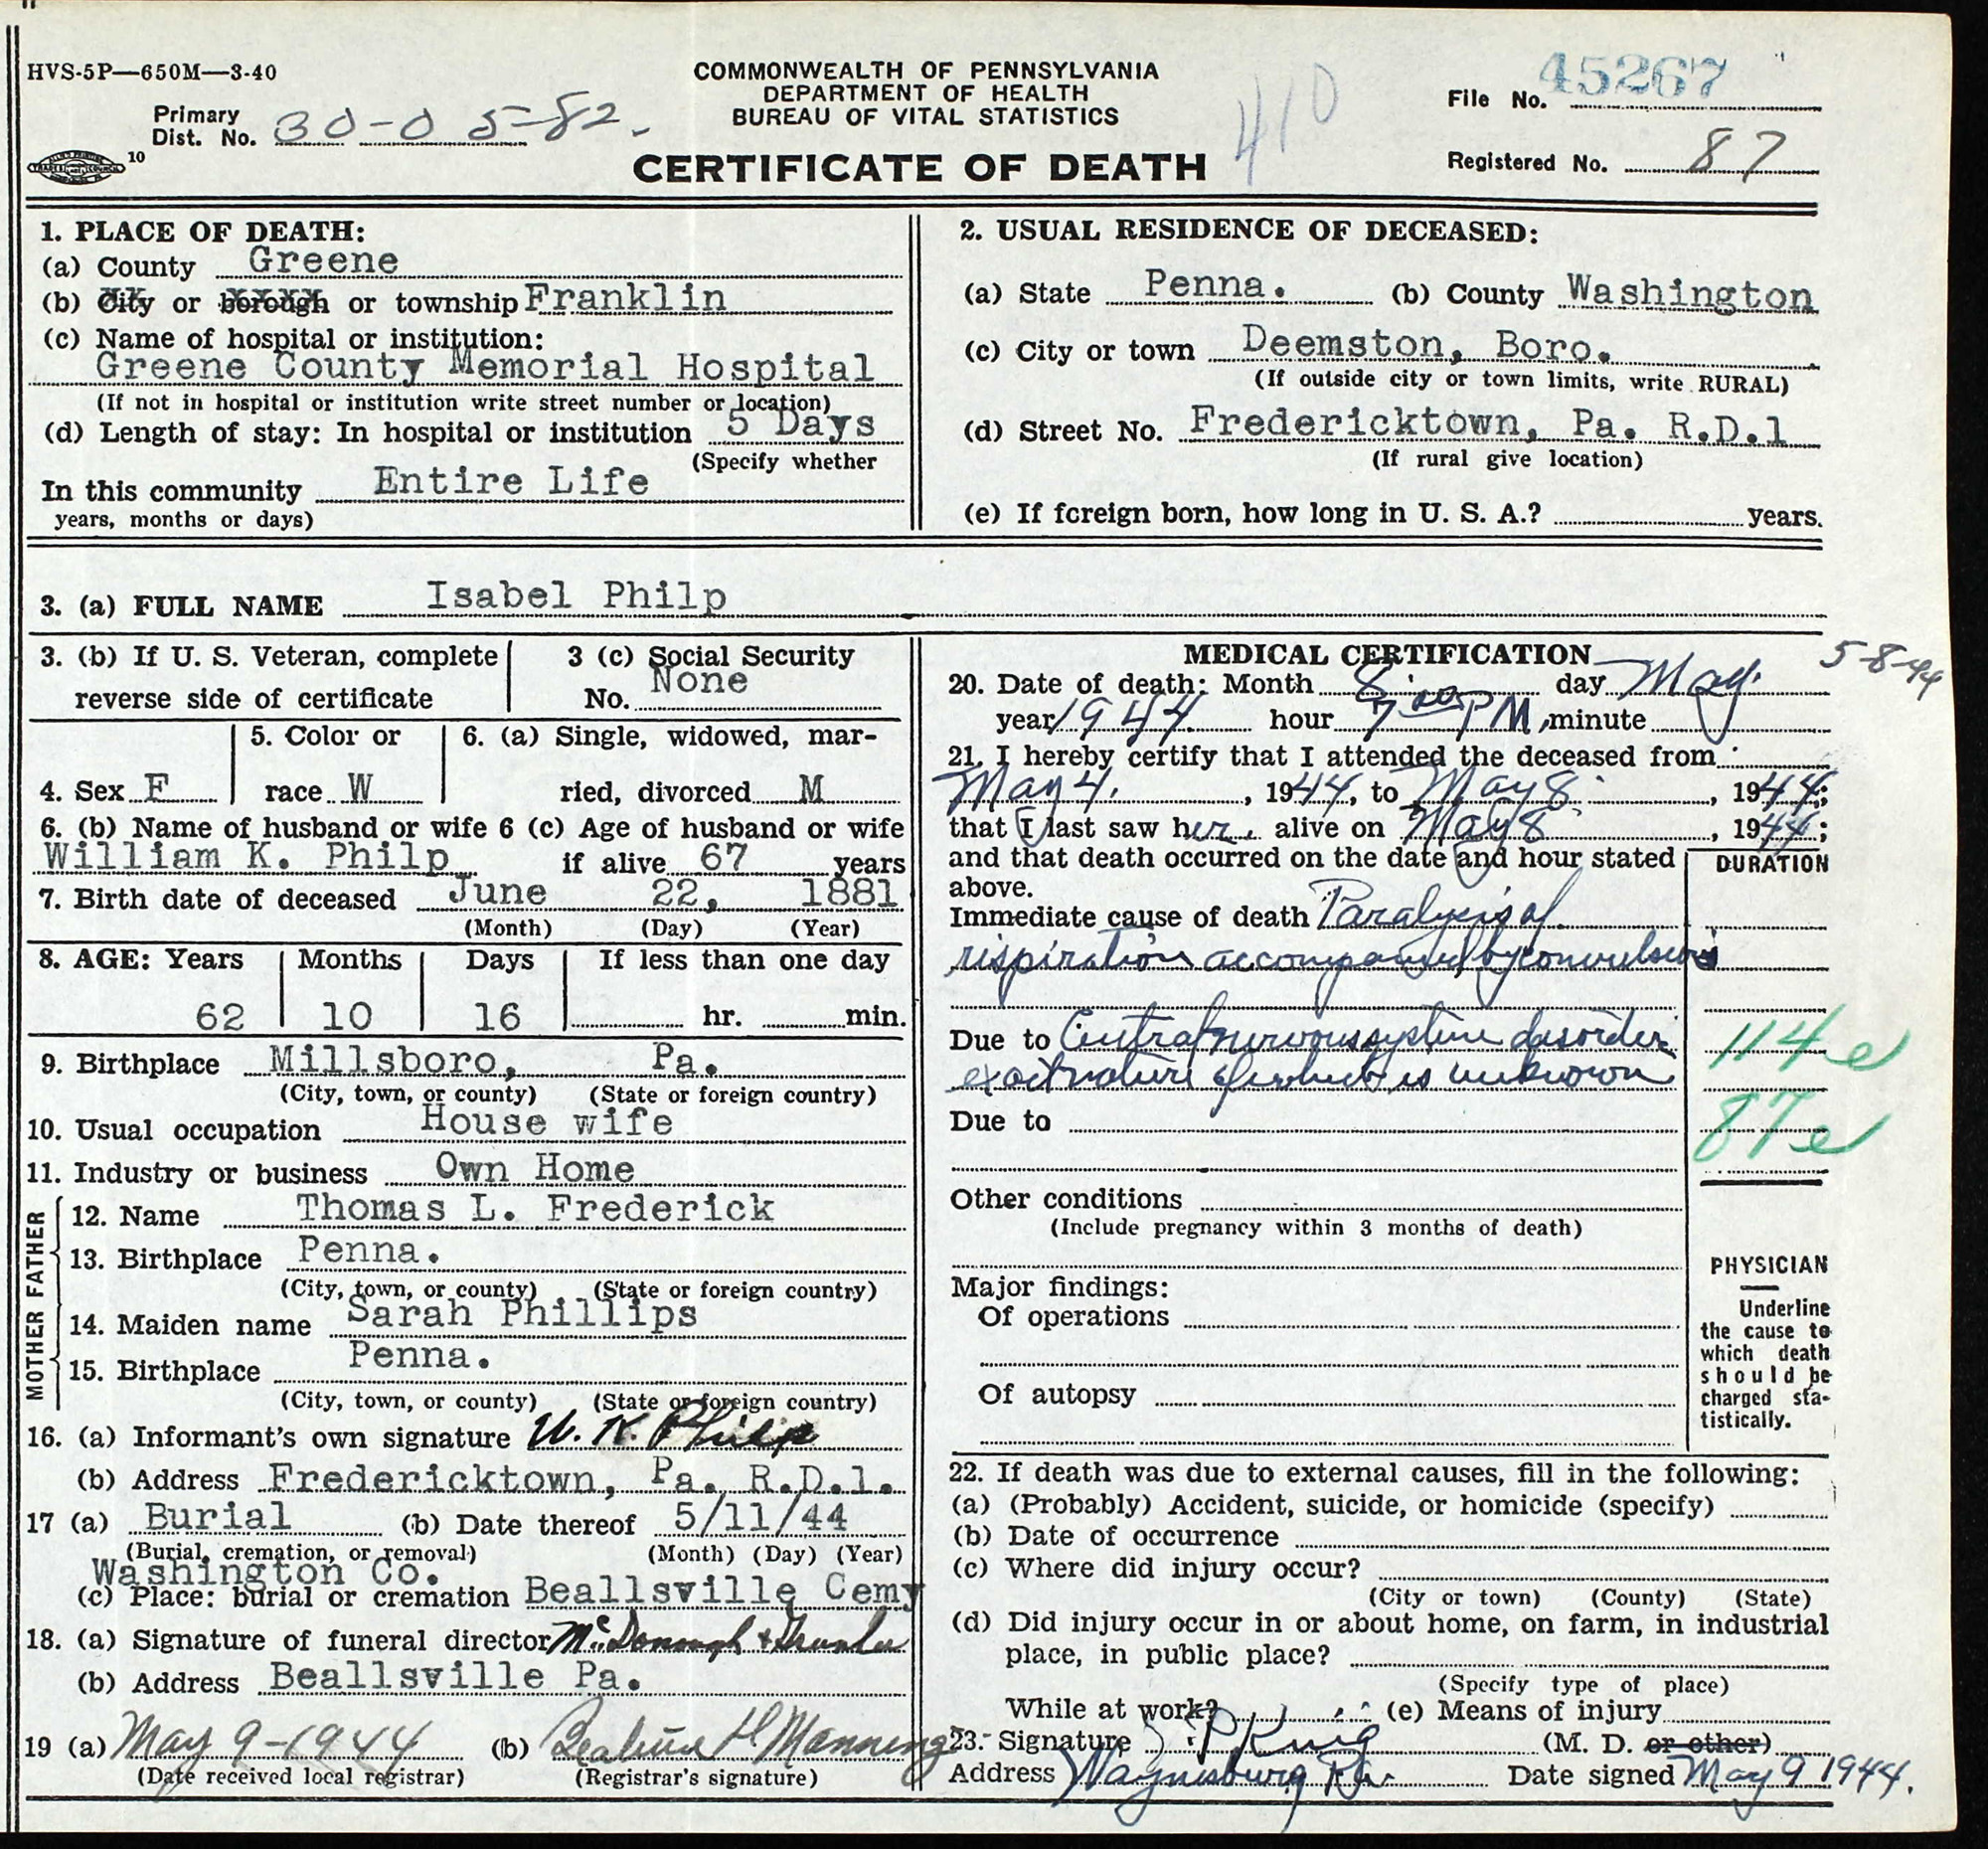 HVS-5P—650M—3-40
COMMONWEALTH OF PENNSYLVANIA
DEPARTMENT OF HEALTH
BUREAU OF VITAL STATISTICS
CERTIFICATE OF DEATH
410
Primary
Dist. No. 30-05-82.
10
File No. 45267
Registered No. 87
1. PLACE OF DEATH:
(a) County Greene
(b) City or borough or township Franklin
(c) Name of hospital or institution:
Greene County Memorial Hospital
(If not in hospital or institution write street number or location)
(d) Length of stay: In hospital or institution 5 Days
(Specify whether
In this community Entire Life
years, months or days)
2. USUAL RESIDENCE OF DECEASED:
(a) State Penna. (b) County Washington
(c) City or town Deemston, Boro.
(If outside city or town limits, write RURAL)
(d) Street No. Fredericktown, Pa. R.D.1
(If rural give location)
(e) If foreign born, how long in U. S. A.? years.
3. (a) FULL NAME Isabel Philp
3. (b) If U. S. Veteran, complete
reverse side of certificate
3 (c) Social Security
No. None
4. Sex F
5. Color or
race W
6. (a) Single, widowed, mar-
ried, divorced M
6. (b) Name of husband or wife 6 (c) Age of husband or wife
William K. Philp if alive 67 years
7. Birth date of deceased June 22, 1881
(Month) (Day) (Year)
8. AGE: Years Months Days If less than one day
62 10 16 hr. min.
9. Birthplace Millsboro, Pa.
(City, town, or county) (State or foreign country)
10. Usual occupation House wife
11. Industry or business Own Home
FATHER
12. Name Thomas L. Frederick
13. Birthplace Penna.
(City, town, or county) (State or foreign country)
MOTHER
14. Maiden name Sarah Phillips
15. Birthplace Penna.
(City, town, or county) (State or foreign country)
16. (a) Informant's own signature W. K. Philp
(b) Address Fredericktown, Pa. R.D.1.
17 (a) Burial (b) Date thereof 5/11/44
(Burial, cremation, or removal) (Month) (Day) (Year)
Washington Co.
(c) Place: burial or cremation Beallsville Cemy
18. (a) Signature of funeral director McDonough +
(b) Address Beallsville Pa.
19 (a) May 9-1944 (b) Beatrice H Manning
(Date received local registrar) (Registrar's signature)
MEDICAL CERTIFICATION
5-8-44
20. Date of death: Month 8 day May.
year 1944. hour 7:00 PM, minute
21. I hereby certify that I attended the deceased from
May 4, 1944, to May 8, 1944;
that I last saw her alive on May 8, 1944;
and that death occurred on the date and hour stated
above.
DURATION
Immediate cause of death Paralysis of
respiration accompanied by convulsions
Due to Central nervous system disorder
exact nature of which is unknown
114e
87e
Due to
Other conditions
(Include pregnancy within 3 months of death)
Major findings:
Of operations
Of autopsy
PHYSICIAN
Underline
the cause to
which death
should be
charged sta-
tistically.
22. If death was due to external causes, fill in the following:
(a) (Probably) Accident, suicide, or homicide (specify)
(b) Date of occurrence
(c) Where did injury occur?
(City or town) (County) (State)
(d) Did injury occur in or about home, on farm, in industrial
place, in public place?
(Specify type of place)
While at work? (e) Means of injury
23. Signature King (M. D. or other)
Address Waynesburg Pa. Date signed May 9 1944.